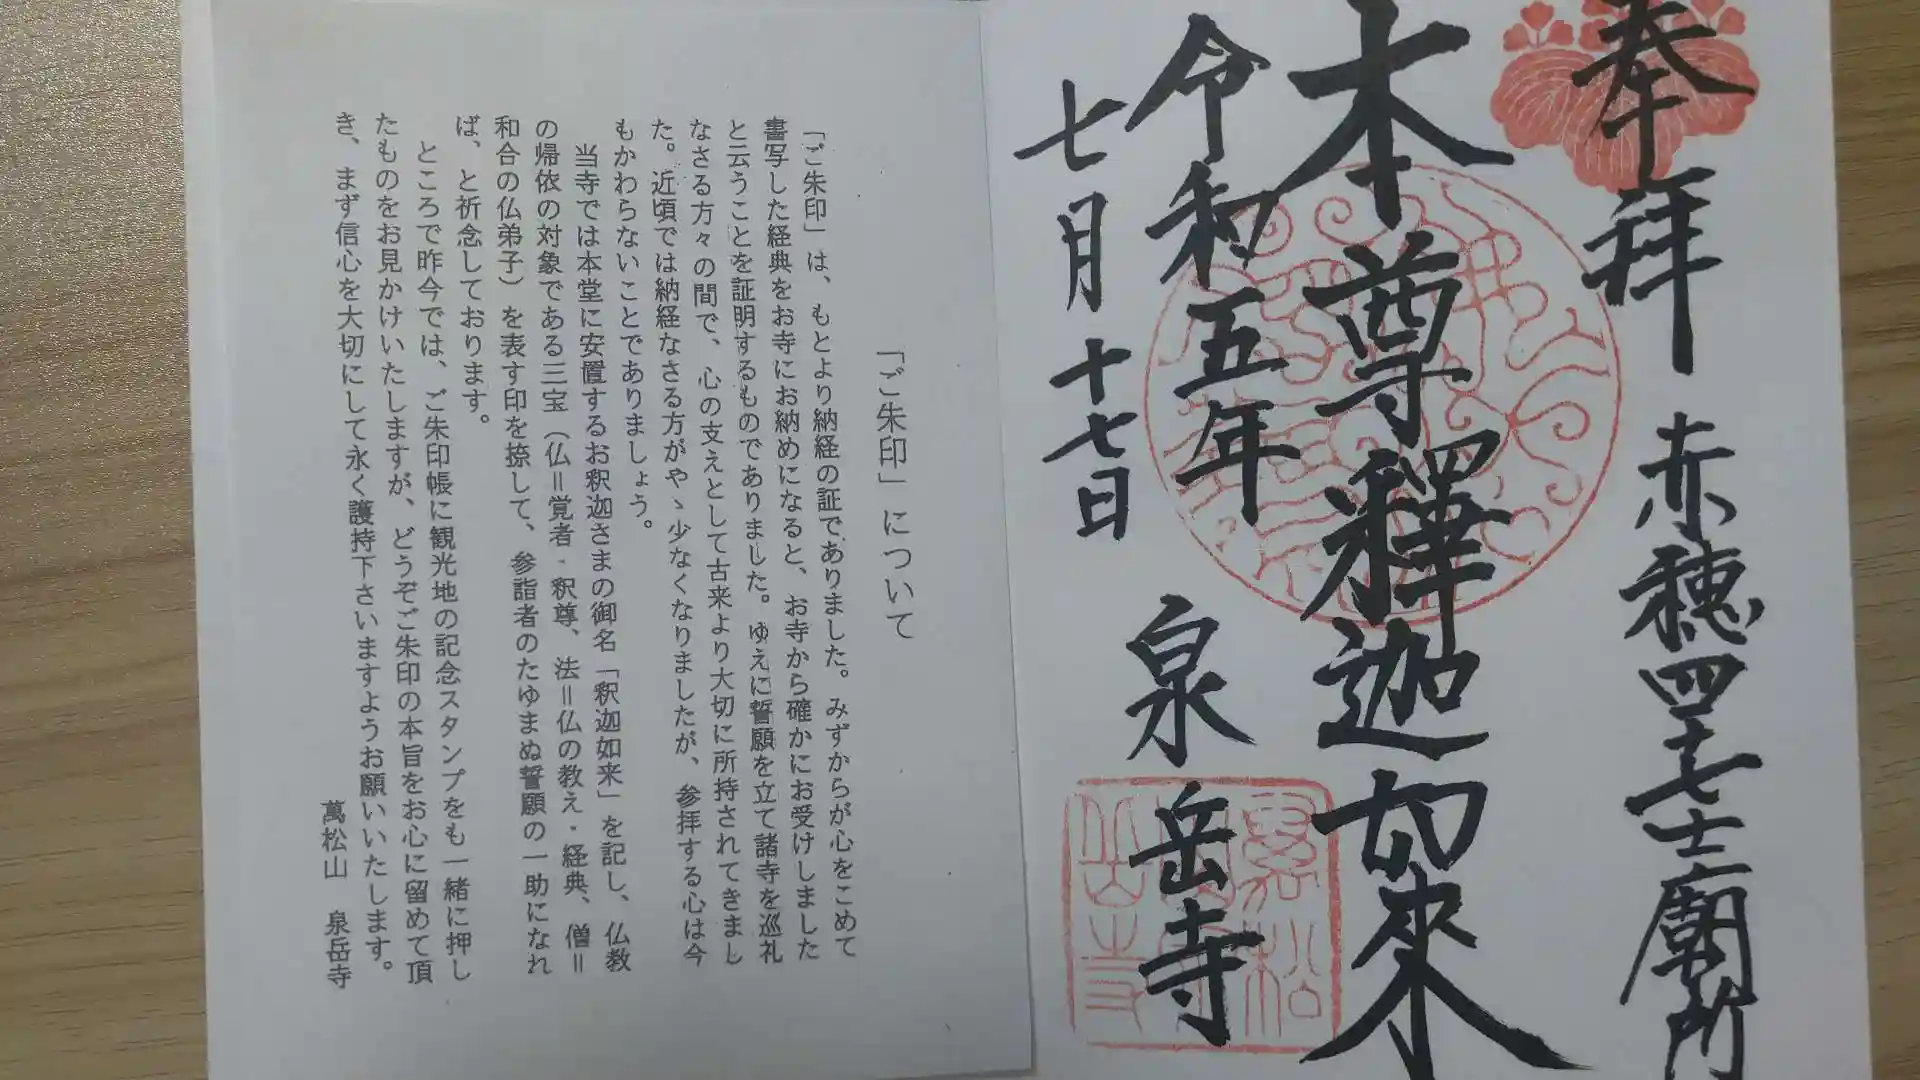 奉拝 赤穂四十七士廟所
本尊釋迦如來
令和五年
七月十七日
泉岳寺
「ご朱印」について
「ご朱印」は、もとより納経の証でありました。みずからが心をこめて
書写した経典をお寺にお納めになると、お寺から確かにお受けしました
と云うことを証明するものでありました。ゆえに誓願を立て諸寺を巡礼
なさる方々の間で、心の支えとして古来より大切に所持されてきまし
た。近頃では納経なさる方がやゝ少なくなりましたが、参拝する心は今
もかわらないことでありましょう。
当寺では本堂に安置するお釈迦さまの御名「釈迦如来」を記し、仏教
の帰依の対象である三宝（仏＝覚者・釈尊、法＝仏の教え・経典、僧＝
和合の仏弟子）を表す印を捺して、参詣者のたゆまぬ誓願の一助になれ
ば、と祈念しております。
ところで昨今では、ご朱印帳に観光地の記念スタンプをも一緒に押し
たものをお見かけいたしますが、どうぞご朱印の本旨をお心に留めて頂
き、まず信心を大切にして永く護持下さいますようお願いいたします。
萬松山 泉岳寺